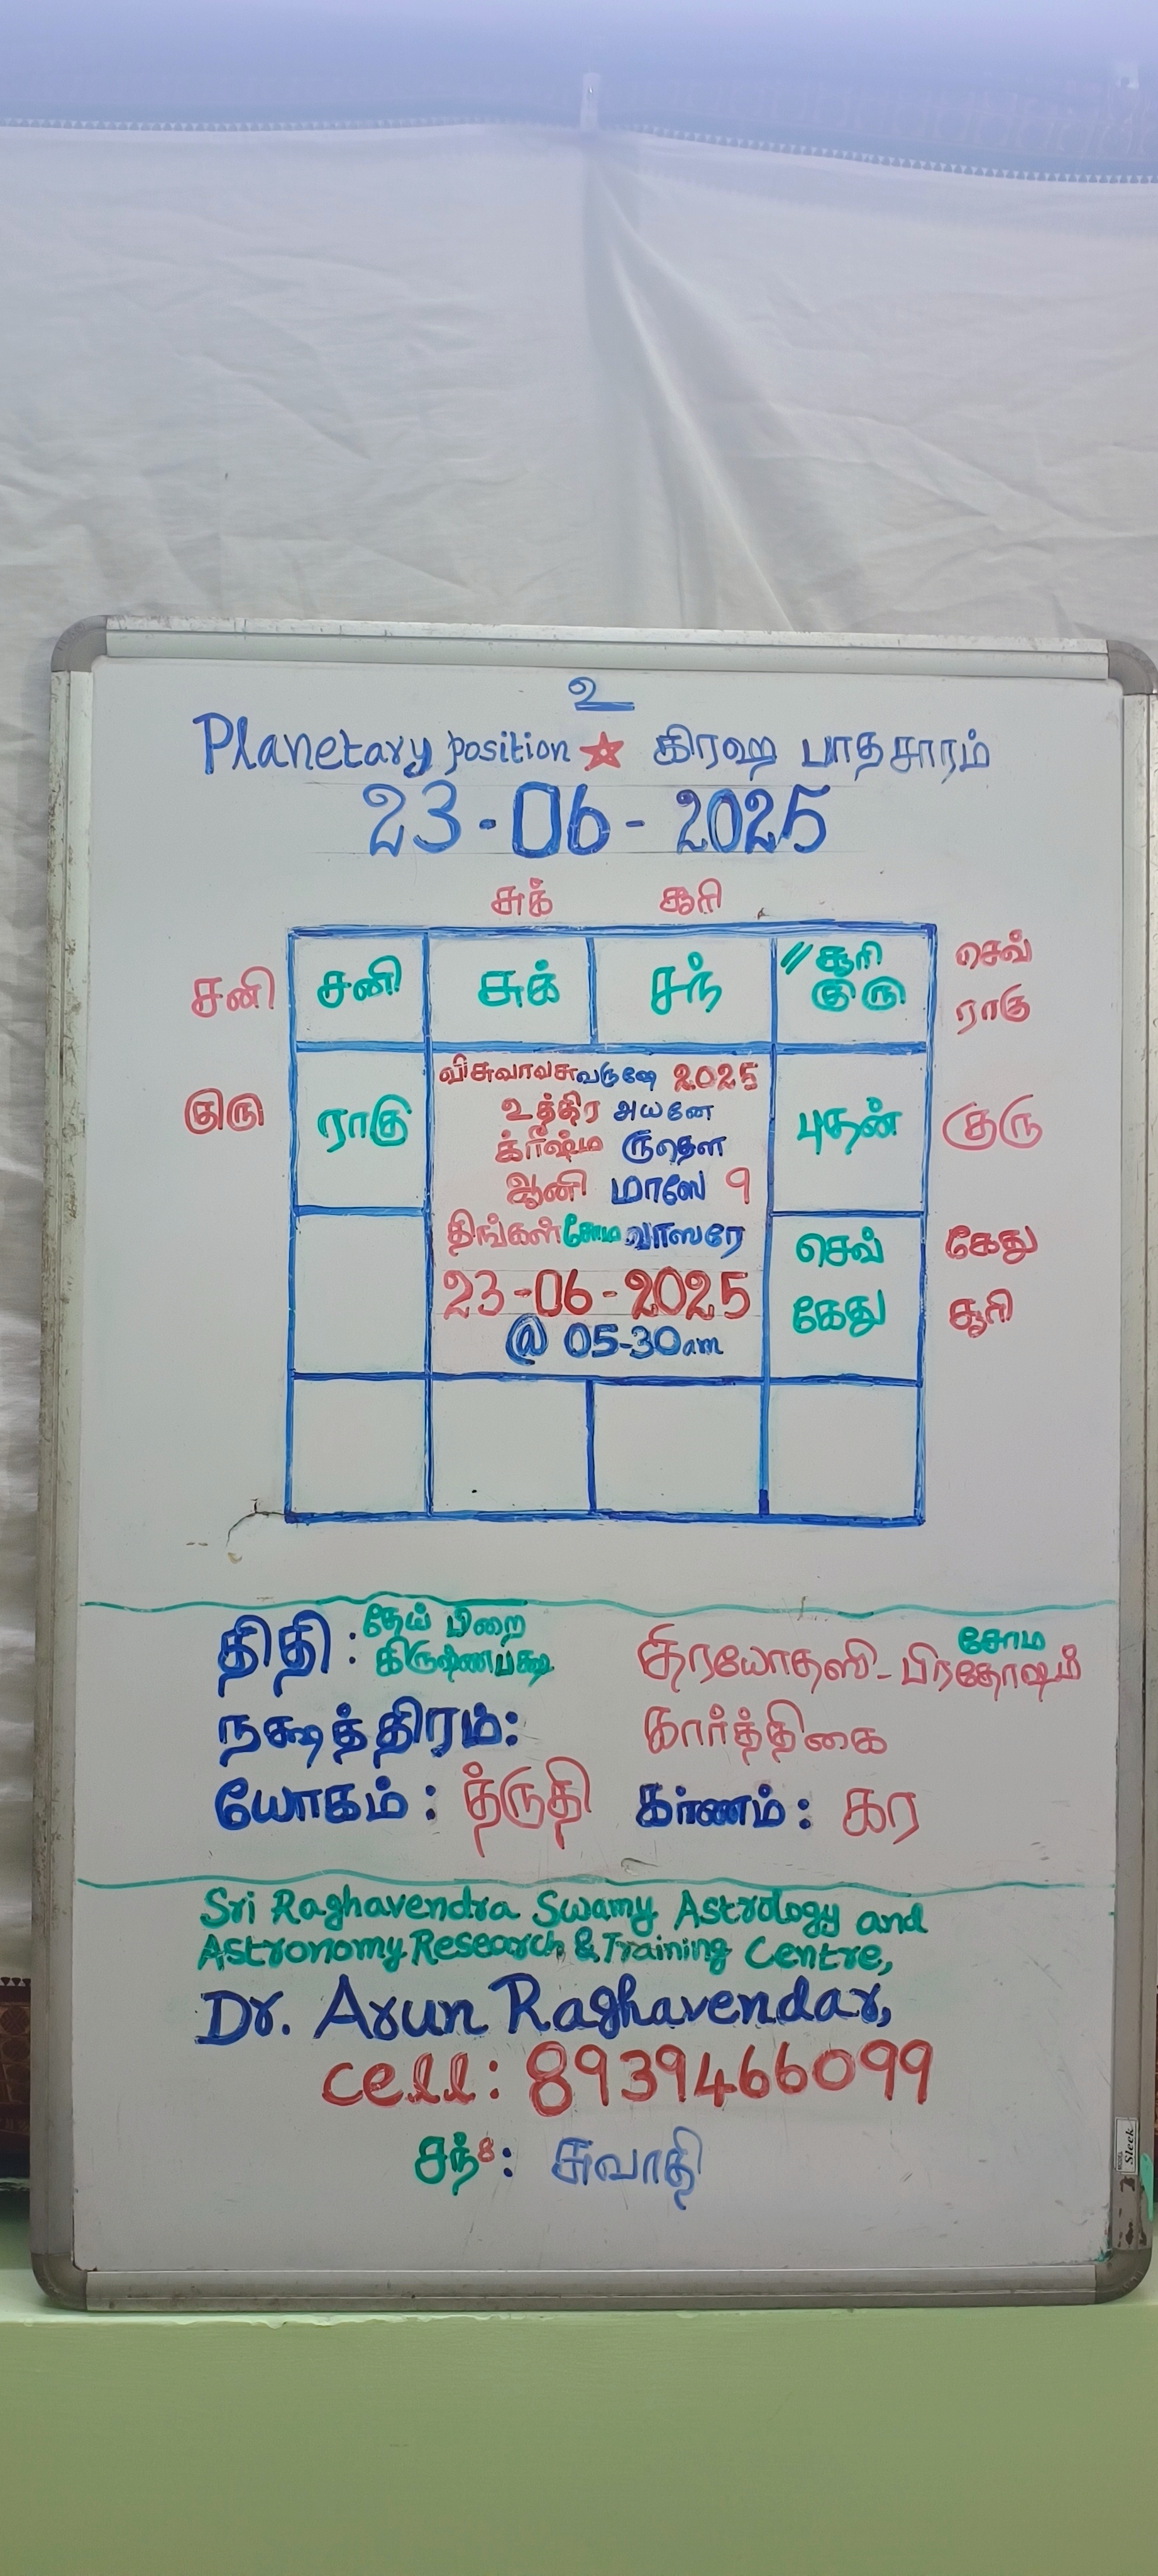 உ
Planetary position ☆ கிரஹ பாதசாரம்
23-06-2025
சுக் சூரி
சனி சனி சுக் சந் // சூரி குரு செவ் ராகு
குரு ராகு புதன் குரு
விசுவாவசுவருஷே 2025
உத்திர அயனே
க்ரிஷ்ம ருதௌ
ஆனி மாஸே 9
திங்கள் சோம வாஸரே
23-06-2025
@ 05-30am
செவ் கேது
கேது சூரி
திதி : தேய் பிறை கிருஷ்ணபக்ஷ திரயோதஸி - சோம பிரதோஷம்
நக்ஷத்திரம்: கார்த்திகை
யோகம் : த்ருதி கர்ணம் : கர
Sri Raghavendra Swamy Astrology and
Astronomy Research & Training Centre,
Dr. Arun Raghavendar,
cell: 8939466099
சந்8: சுவாதி
Sleek